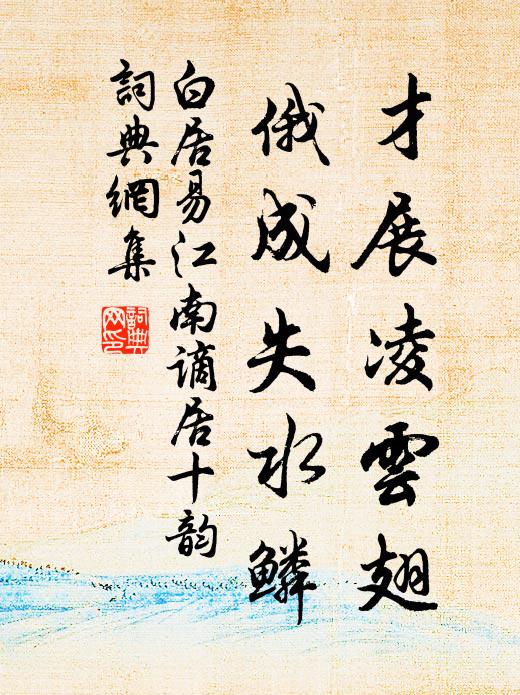 才展凌雲翅
俄成失水鱗
白居易江南谪居十韵
詞典網集
詞典
网印